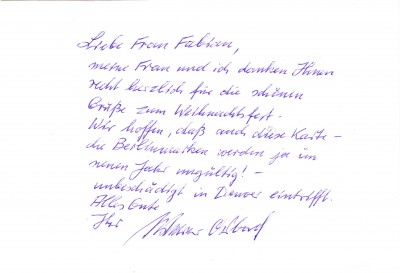 Liebe Frau Fabian,
meine Frau und ich danken Ihnen
recht herzlich für die schönen
Grüße zum Weihnachtsfest.
Wir hoffen, daß auch diese Karte –
die Berlinmarken werden ja im
neuen Jahr ungültig! –
unbeschädigt in Denver eintrifft.
Alles Gute
Ihr